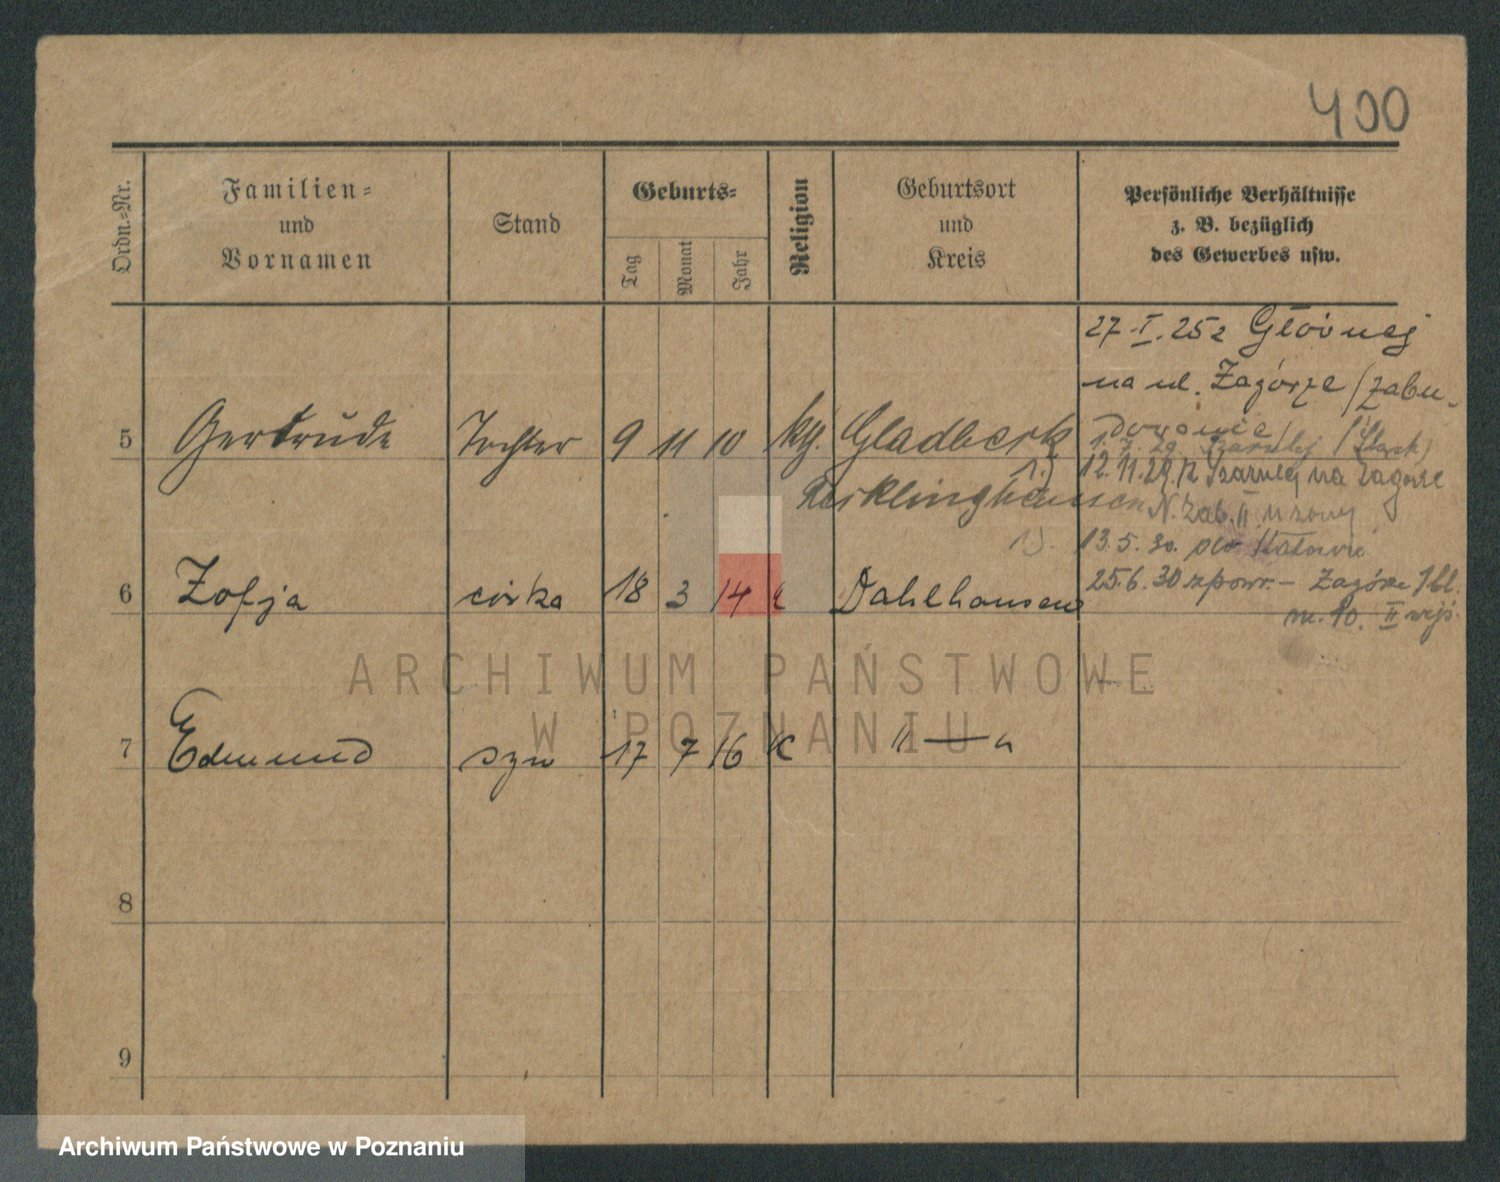 400
Ordn.=Nr.
Familien=
und
Vornamen
Stand
Geburts=
Tag
Monat
Jahr
Religion
Geburtsort
und
Kreis
Persönliche Verhältnisse
z. B. bezüglich
des Gewerbes usw.
27.I.25 z Głównej
na ul. Zagórze / zabu-
dowania /
5 Gertrude Tochter 9 11 10 kţ. Gladbeck
1.7.29. Szarlej / Śląsk /
1.) 12.11.29. z Szarlej na Zagórze
Recklinghausen
N. Zab. II u żony
1.). 13.5.30. do Katowic
6 Zofja córka 18 3 14 k Dahlhausen
25.6.30 zpowr. - Zagórze
m. 10. II wejś.
ARCHIWUM PAŃSTWOWE
W POZNANIU
7 Edmund syn 17 7 16 K " — "
8
9
Archiwum Państwowe w Poznaniu